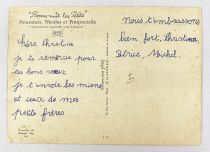 "Bonne nuit les Petits"
Nounours, Nicolas et Pimprenelle
chère Christine
je te remercie pour
as bons vœux
je t'envoie les miens
et ceux de mes
petits frères
Nous t'embrassons
bien fort, Christine,
Patrice, Michel.